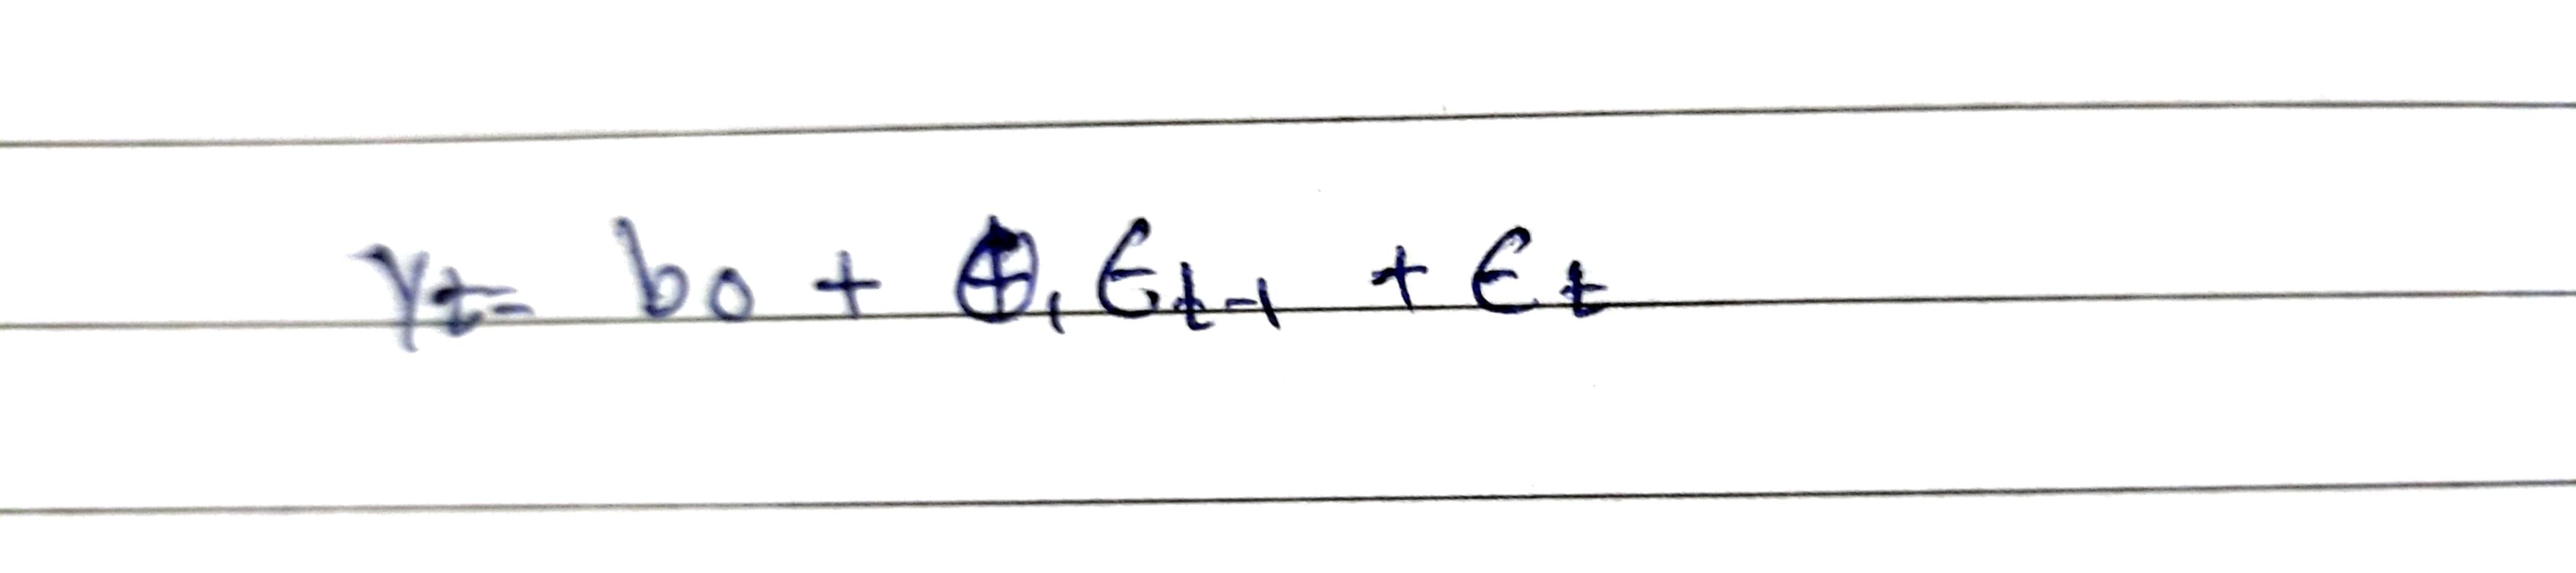 Yt = b0 + θ1 ϵt-1 + ϵt